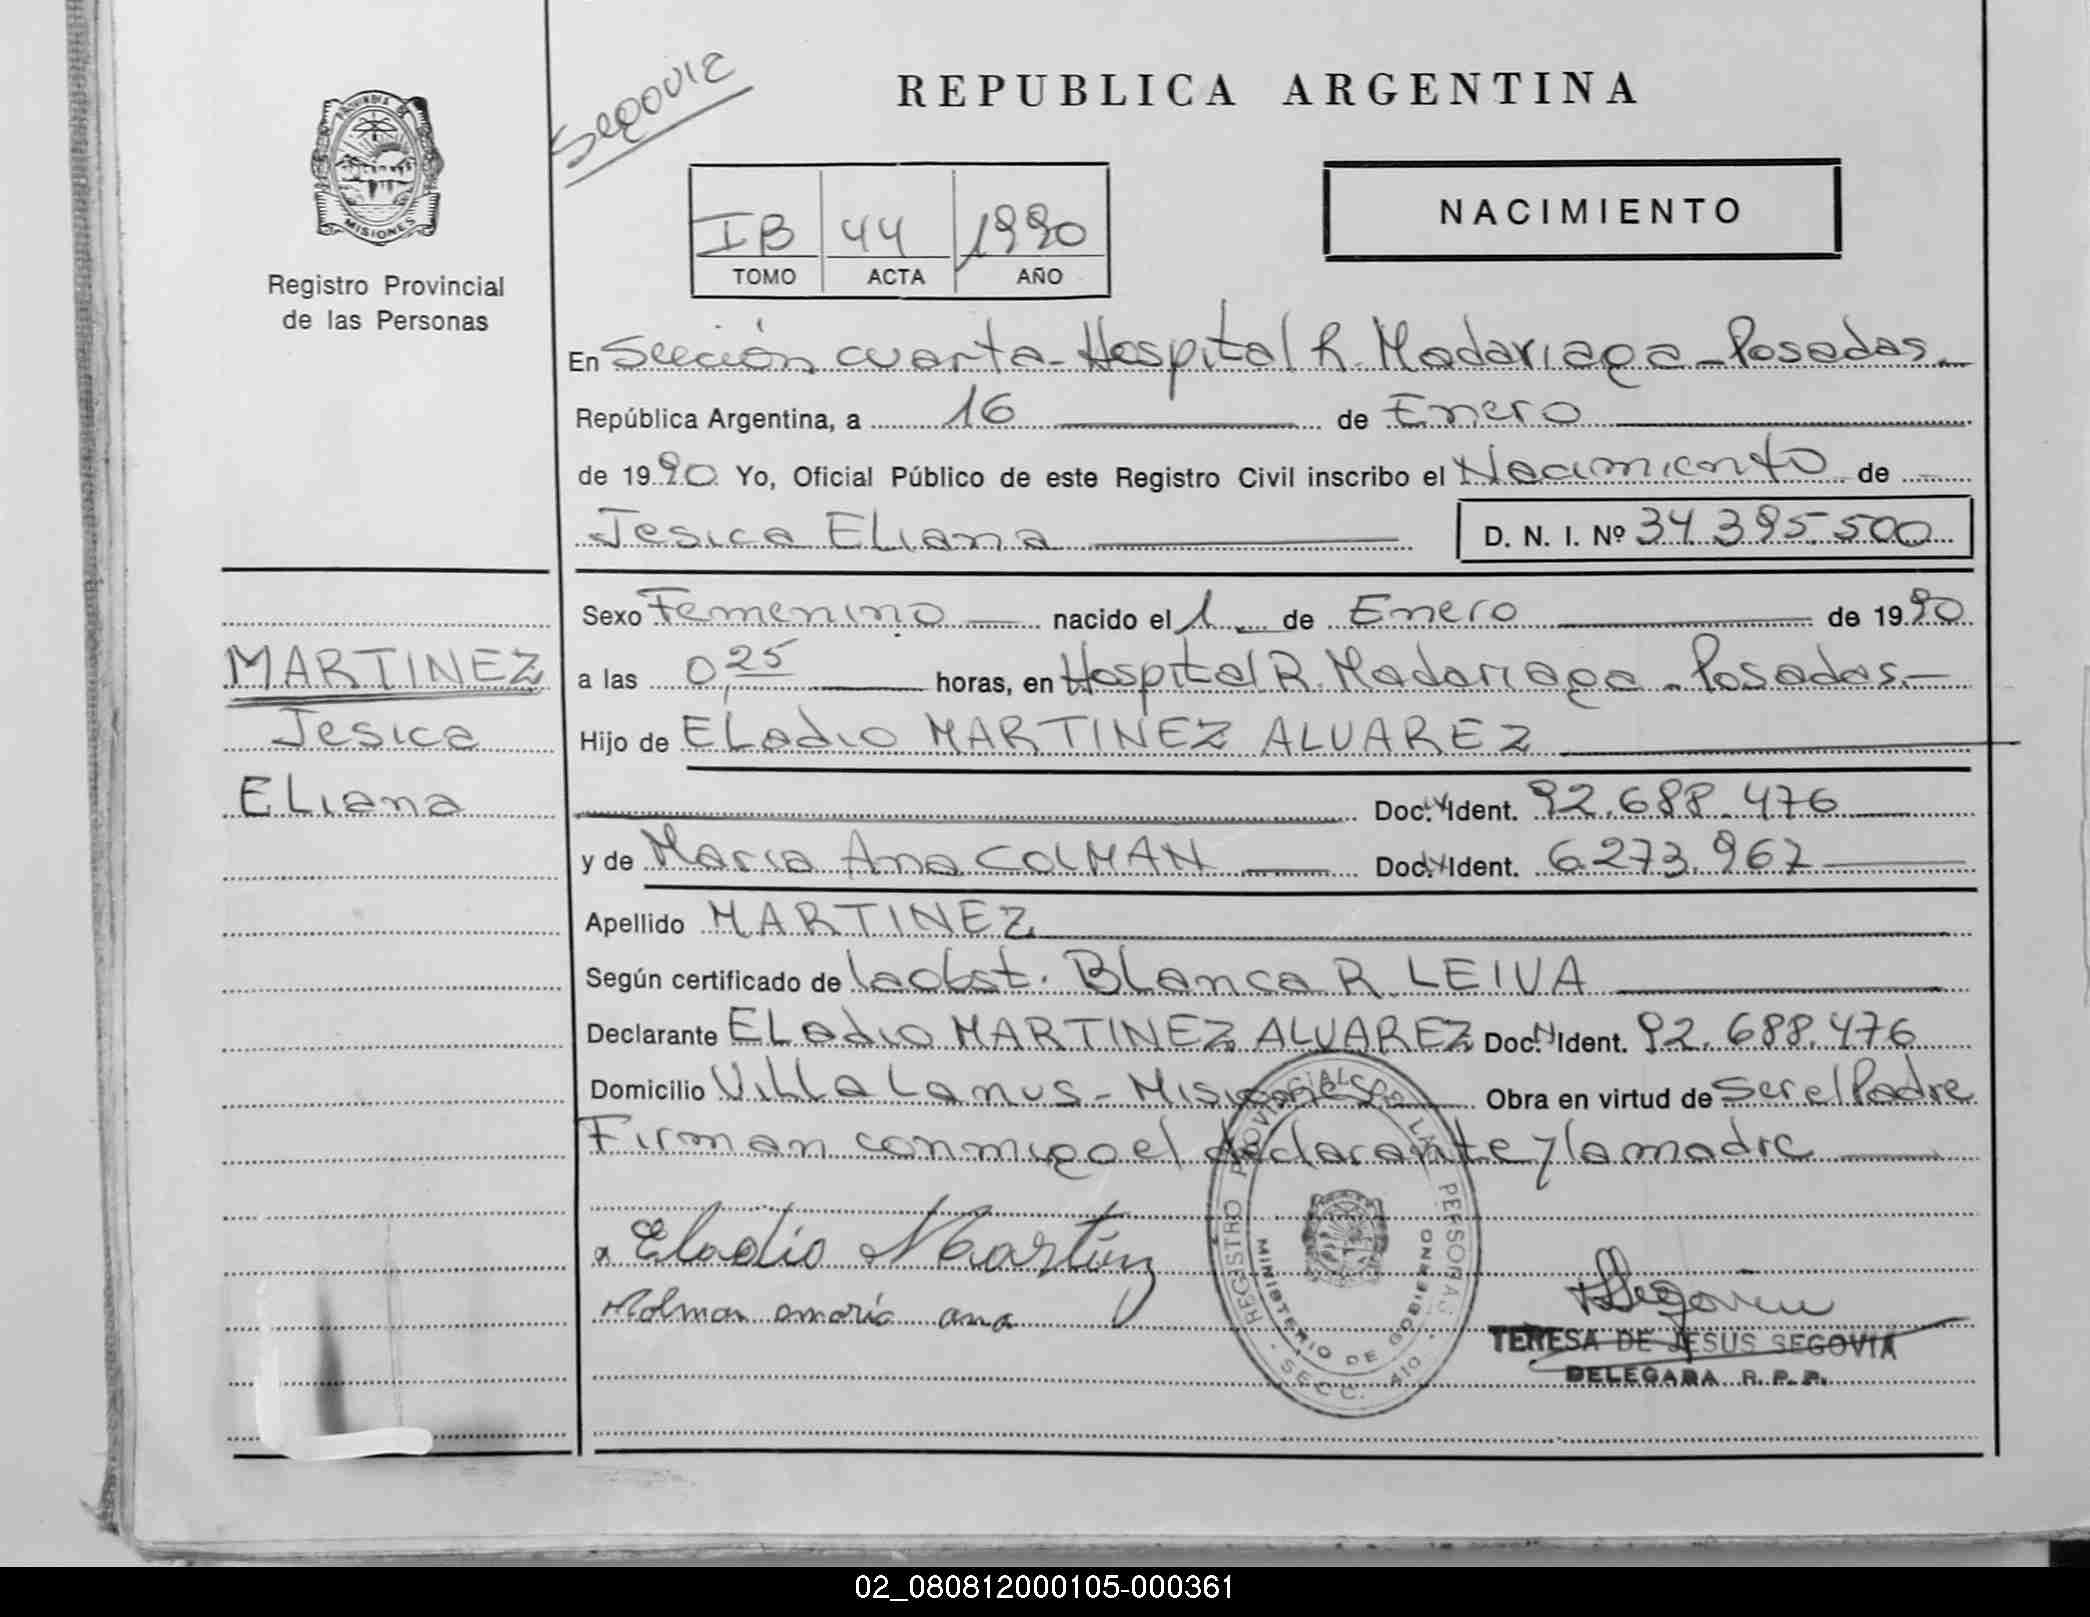 Segovia
REPUBLICA ARGENTINA
PROVINCIA DE
MISIONES
Registro Provincial
de las Personas
IB 44 1990
TOMO ACTA AÑO
NACIMIENTO
En Sección cuarta - Hospital R. Madariaga - Posadas.-
República Argentina, a 16 de Enero
de 1990. Yo, Oficial Público de este Registro Civil inscribo el Nacimiento de
Jesica ELiana D. N. I. Nº 34.395.500
Sexo Femenino nacido el 1 de Enero de 1990
MARTINEZ
a las 0,25 horas, en Hospital R. Madariaga - Posadas.-
Jesica
Hijo de ELadio MARTINEZ ALVAREZ
ELiana
Doc. Ident. 92.688.476
y de Maria Ana COLMAN Doc. Ident. 6.273.967
Apellido MARTINEZ
Según certificado de la obst. BLanca R. LEIVA
Declarante ELadio MARTINEZ ALVAREZ Doc. Ident. 92.688.476
Domicilio ViLLa Lanus - Misiones Obra en virtud de ser el Padre
Firman conmigo el declarante y la madre
Eladio Martínez
maria ana
REGISTRO PROVINCIAL DE LAS PERSONAS
MINISTERIO DE GOBIERNO
SECC. 4TO
Segovia
TERESA DE JESUS SEGOVIA
DELEGADA R. P. P.
02_080812000105-000361